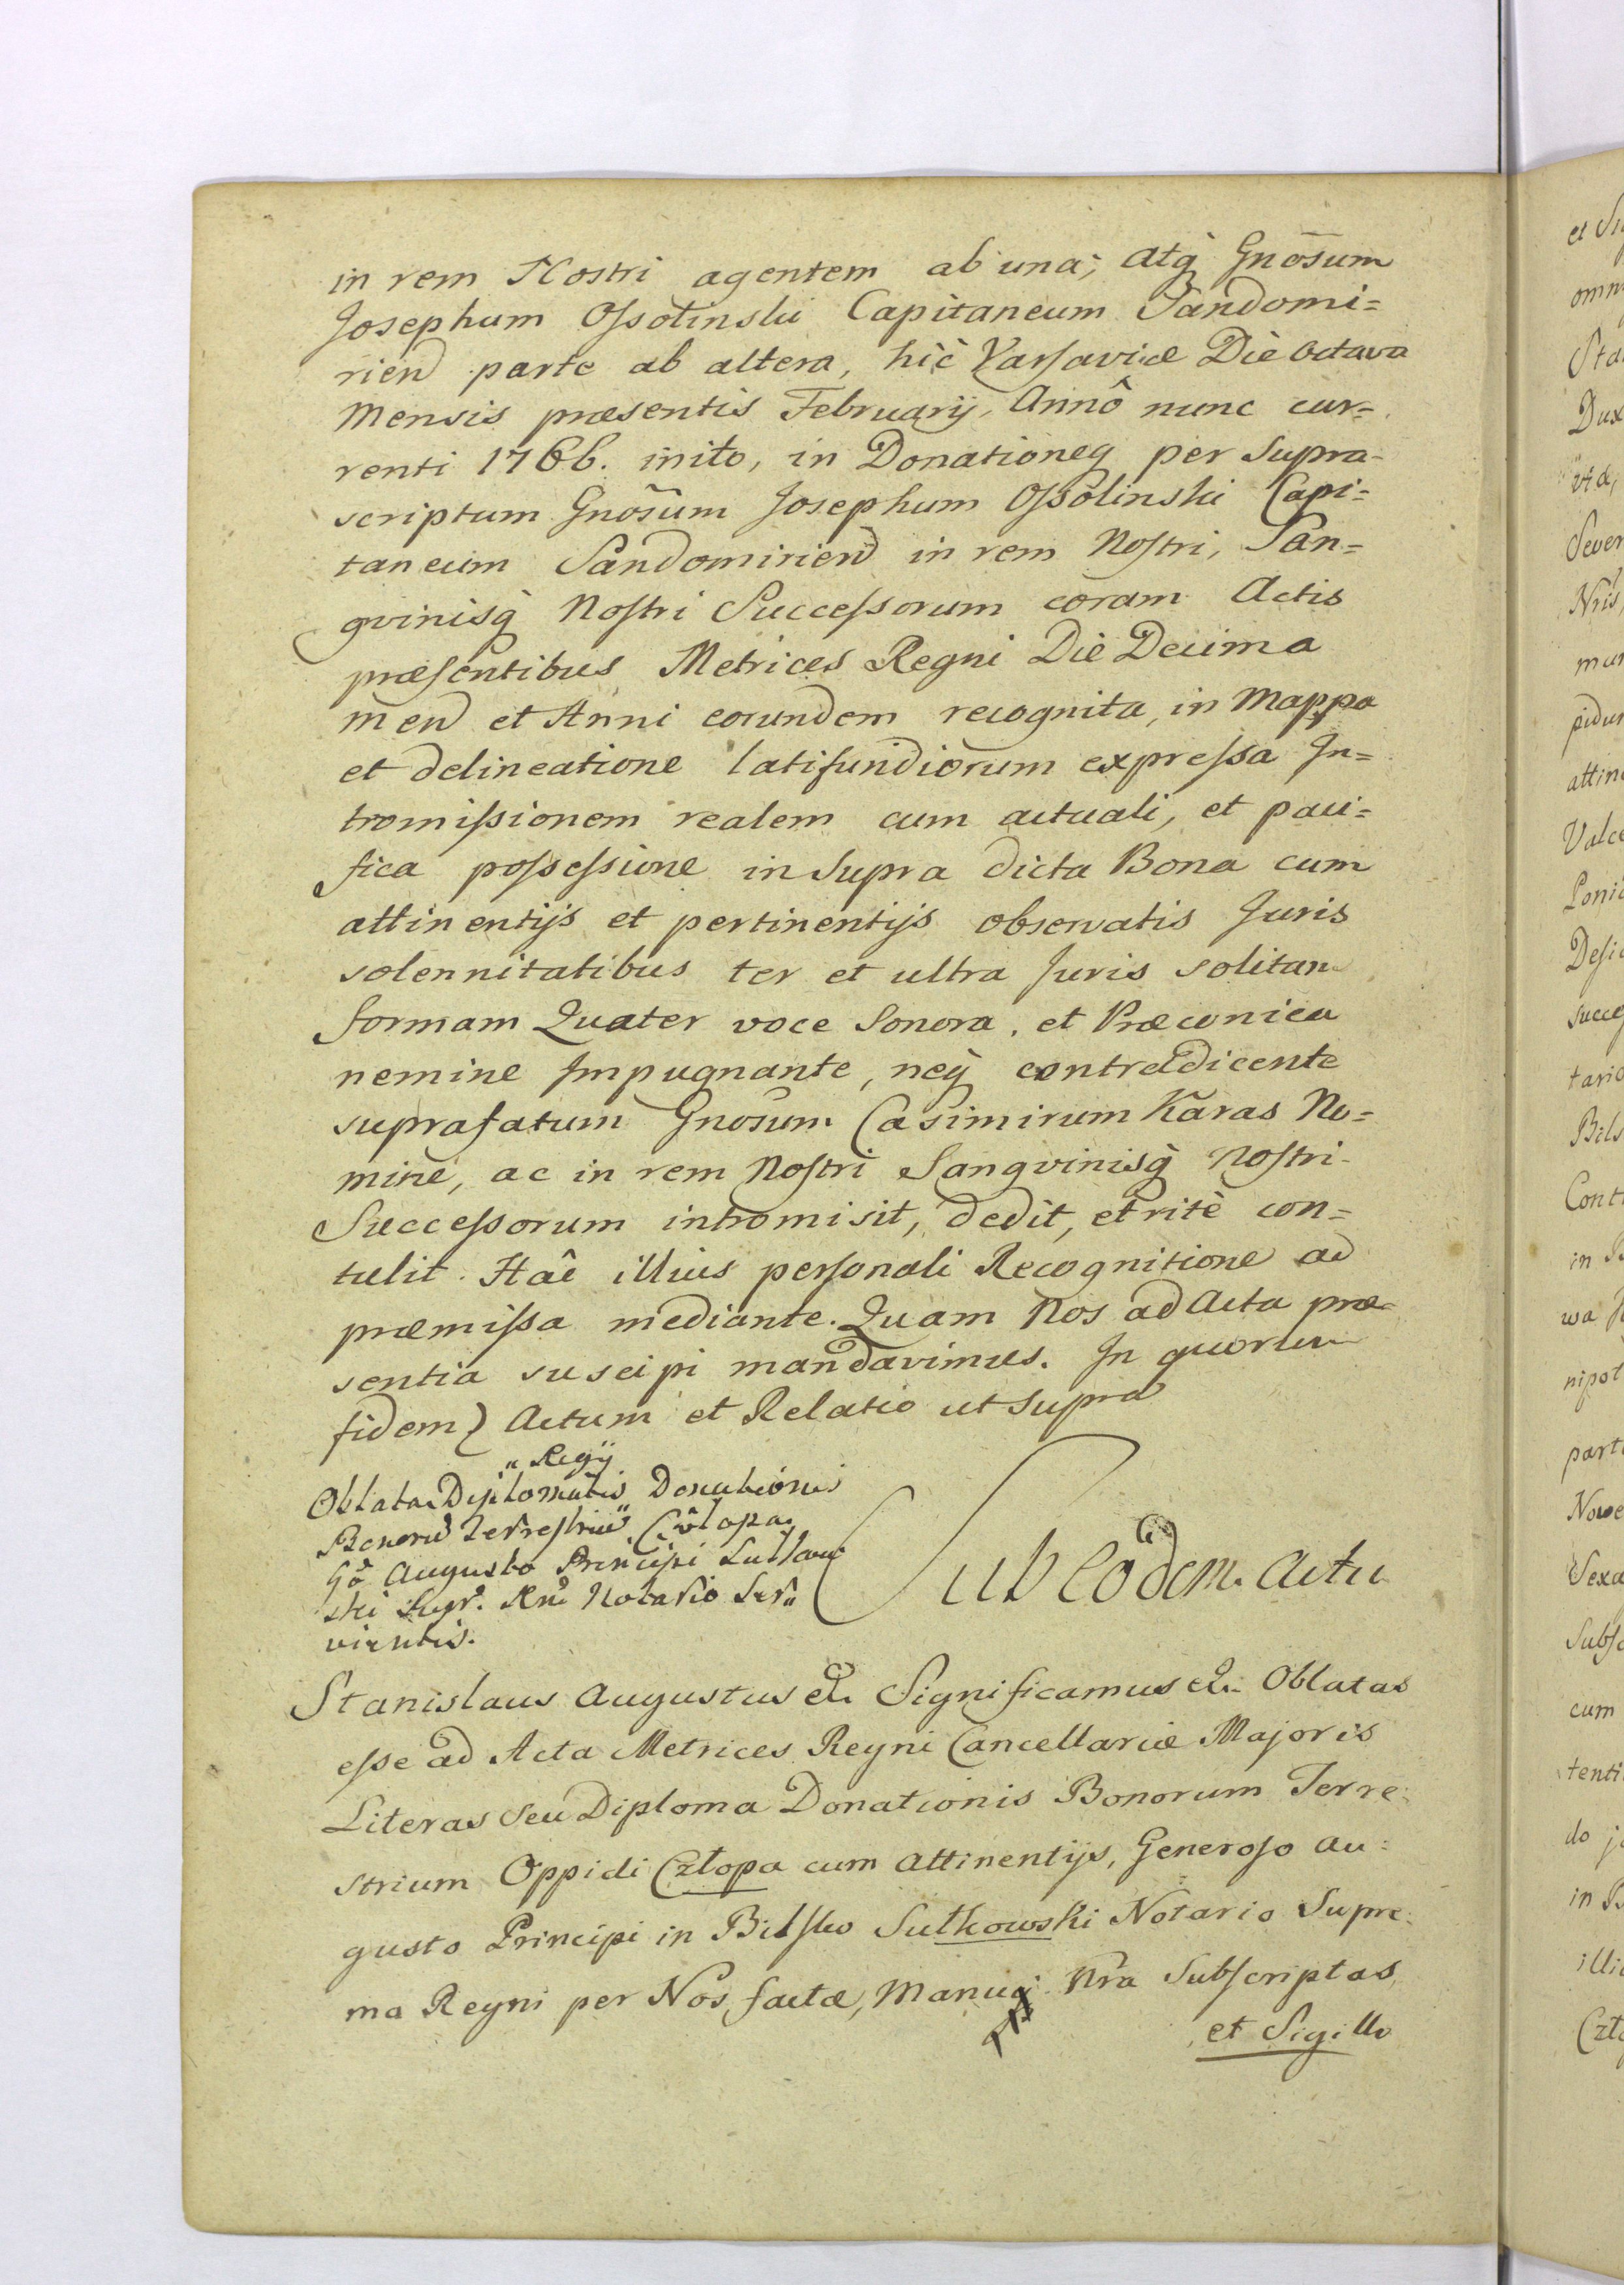 in rem Nostri agentem ab una, atq̀ Gnõsum
Josephum Ossolinski Capitaneum Sandomi=
rien̄ parte ab altera, hìc Varsaviæ Diè octava
Mensis præsentis Februarij, Annô nunc cur=
renti 1766. inito, in Donationeq per supra-
scriptum Gnõsum Josephum Ossolinski Capi=
taneum Sandomirien̄ in rem Nostri, San=
gvinisq̀ Nostri Successorum coram Actis
præsentibus Metrices Regni Diè Decima
men̄ et Anni eorundem recognita, in Mappa
et delineatione latifundiorum expressa In=
tromissionem realem cum actuali, et paci=
fica possessione in supra dicta Bona cum
attinentijs et pertinentijs observatis Juris
solennitatibus ter et ultra Juris solitam
formam Quater voce sonora, et Præconica
nemine Impugnante, neq̀ contradicente
suprafatum Gnõsum Casimirum Karas No=
mine, ac in rem Nostri Sangvinisq̀ Nostri
Successorum intromisit, dedit, et ritè con=
tulit. Hâc illius personali Recognitione ad
præmissa mediante. Quam Nos ad Acta præ=
sentia suscipi mandavimus. In quorum
fidem Actum et Relatio ut supra
" Regij
Oblata Diplomatis Donationis
Bonorū Terrestriū Człopa,
Gō Augusto Principi Sułkow
ski Supr. Rni Notario Ser"
vientis.
Sub eōdem Actu
Stanislaus Augustus &. Significamus &. Oblatas
esse ad Acta Metrices Regni Cancellariæ Majoris
Literas seu Diploma Donationis Bonorum Terre=
strium Oppidi Człopa cum attinentijs, Generoso Au=
gusto Principi in Bilsko Sułkowski Notario Supre=
ma Regni per Nos factæ, Manuq̀ Nra Subscriptas
et Sigillo